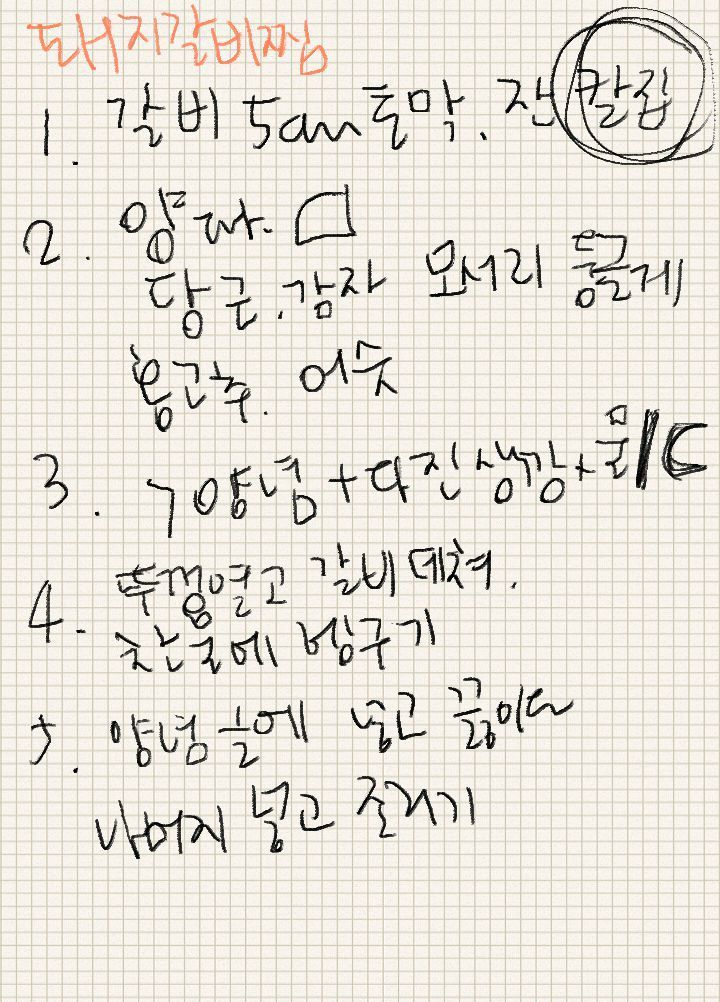 돼지갈비찜
1. 갈비 5cm 토막. 잔 칼집
2. 양파.
당근.감자 모서리 둥글게
홍고추. 어슷
3. ㄱ양념+다진생강+물1C
4. 뚜껑열고 갈비 데쳐.
찬물에 헹구기
5. 양념 1/2에 넣고 끓이다
나머지 넣고 조리기